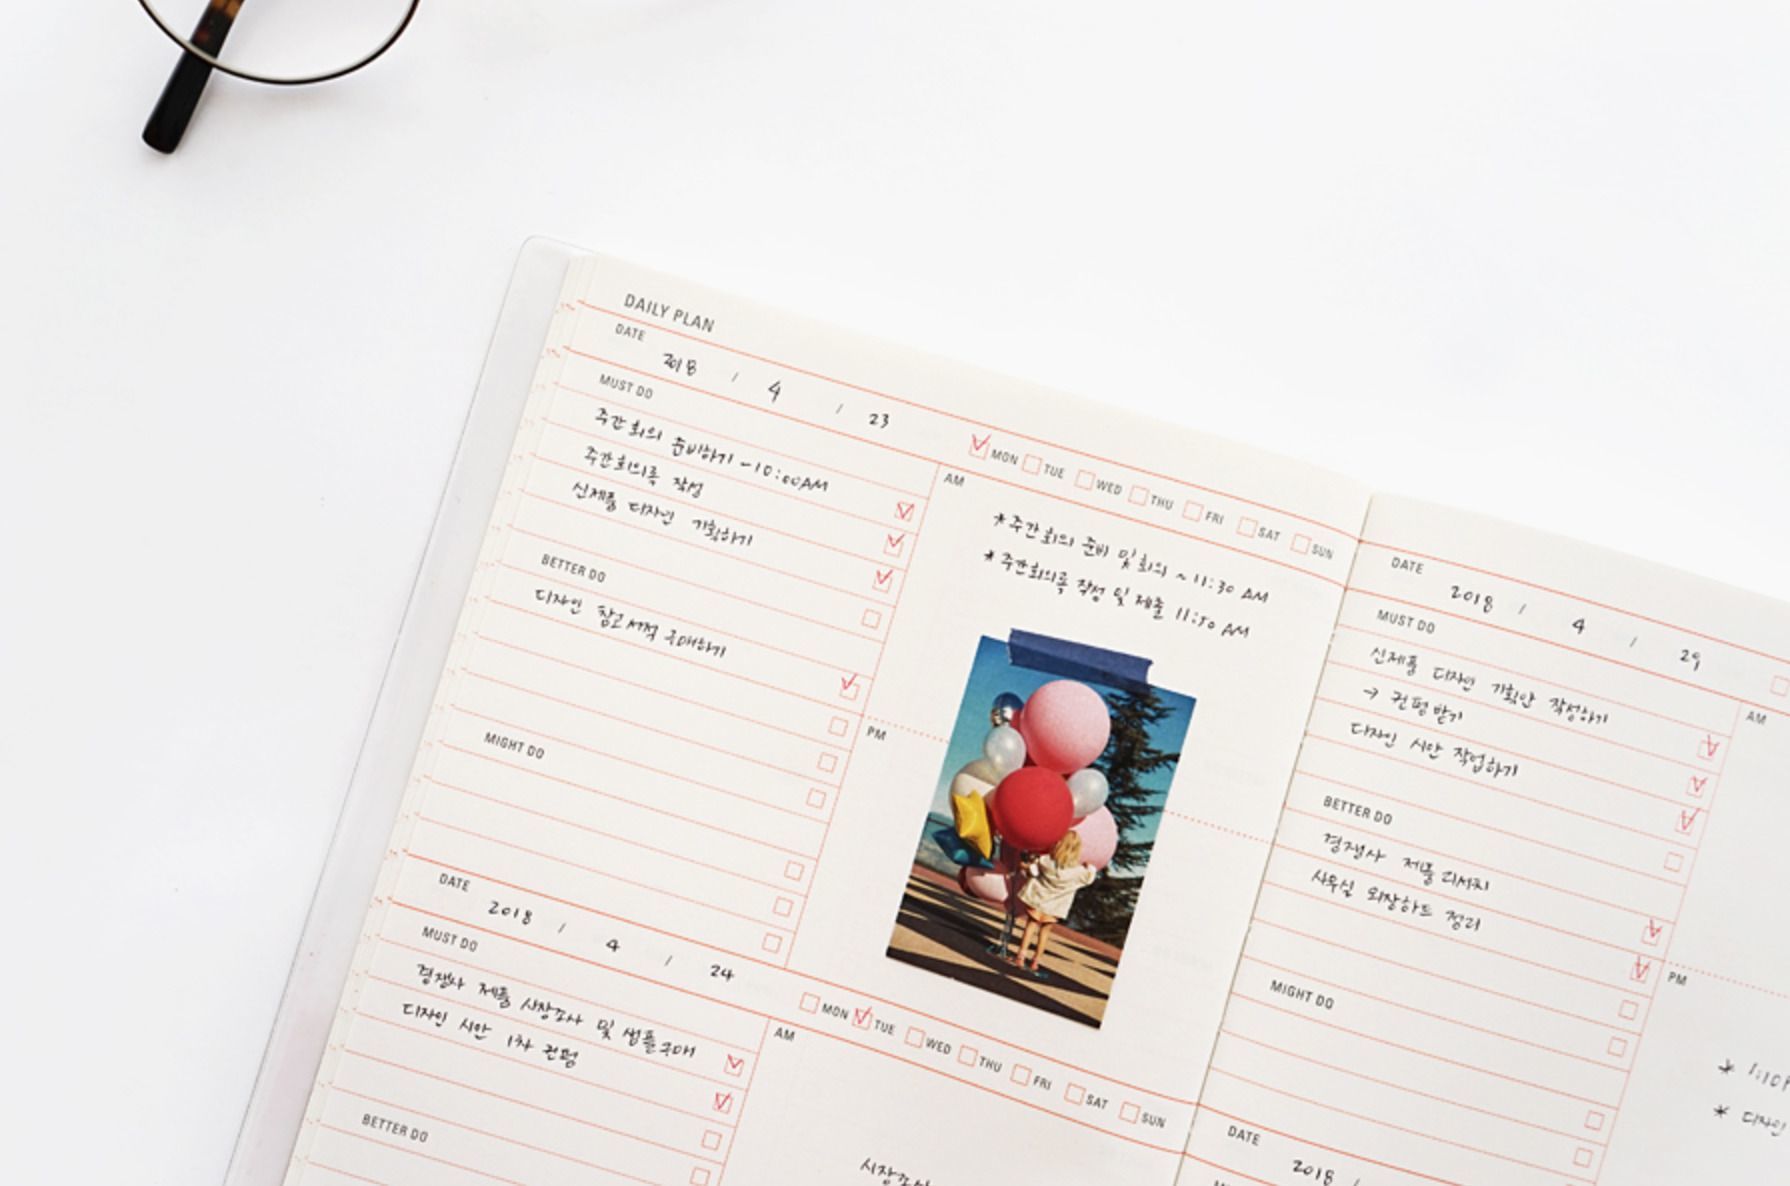 DAILY PLAN
DATE
2018 / 4 / 23
MON TUE WED THU FRI SAT SUN
MUST DO
주간회의 준비하기 -10:00AM
주간회의록 작성
신제품 디자인 기획하기
BETTER DO
디자인 참고서적 구매하기
MIGHT DO
AM
*주간회의 준비 및 회의 ~ 11:30 AM
*주간회의록 작성 및 제출 11:50 AM
PM
DATE
2018 / 4 / 24
MON TUE WED THU FRI SAT SUN
MUST DO
경쟁사 제품 시장조사 및 샘플구매
디자인 시안 1차 컨펌
BETTER DO
AM
시장조사
DATE
2018 / 4 / 29
MUST DO
신제품 디자인 기획안 작성하기
→ 컨펌받기
디자인 시안 작업하기
BETTER DO
경쟁사 제품 리서치
사무실 외장하드 정리
MIGHT DO
AM
PM
* 1:10P
* 디자인
DATE
2018 /